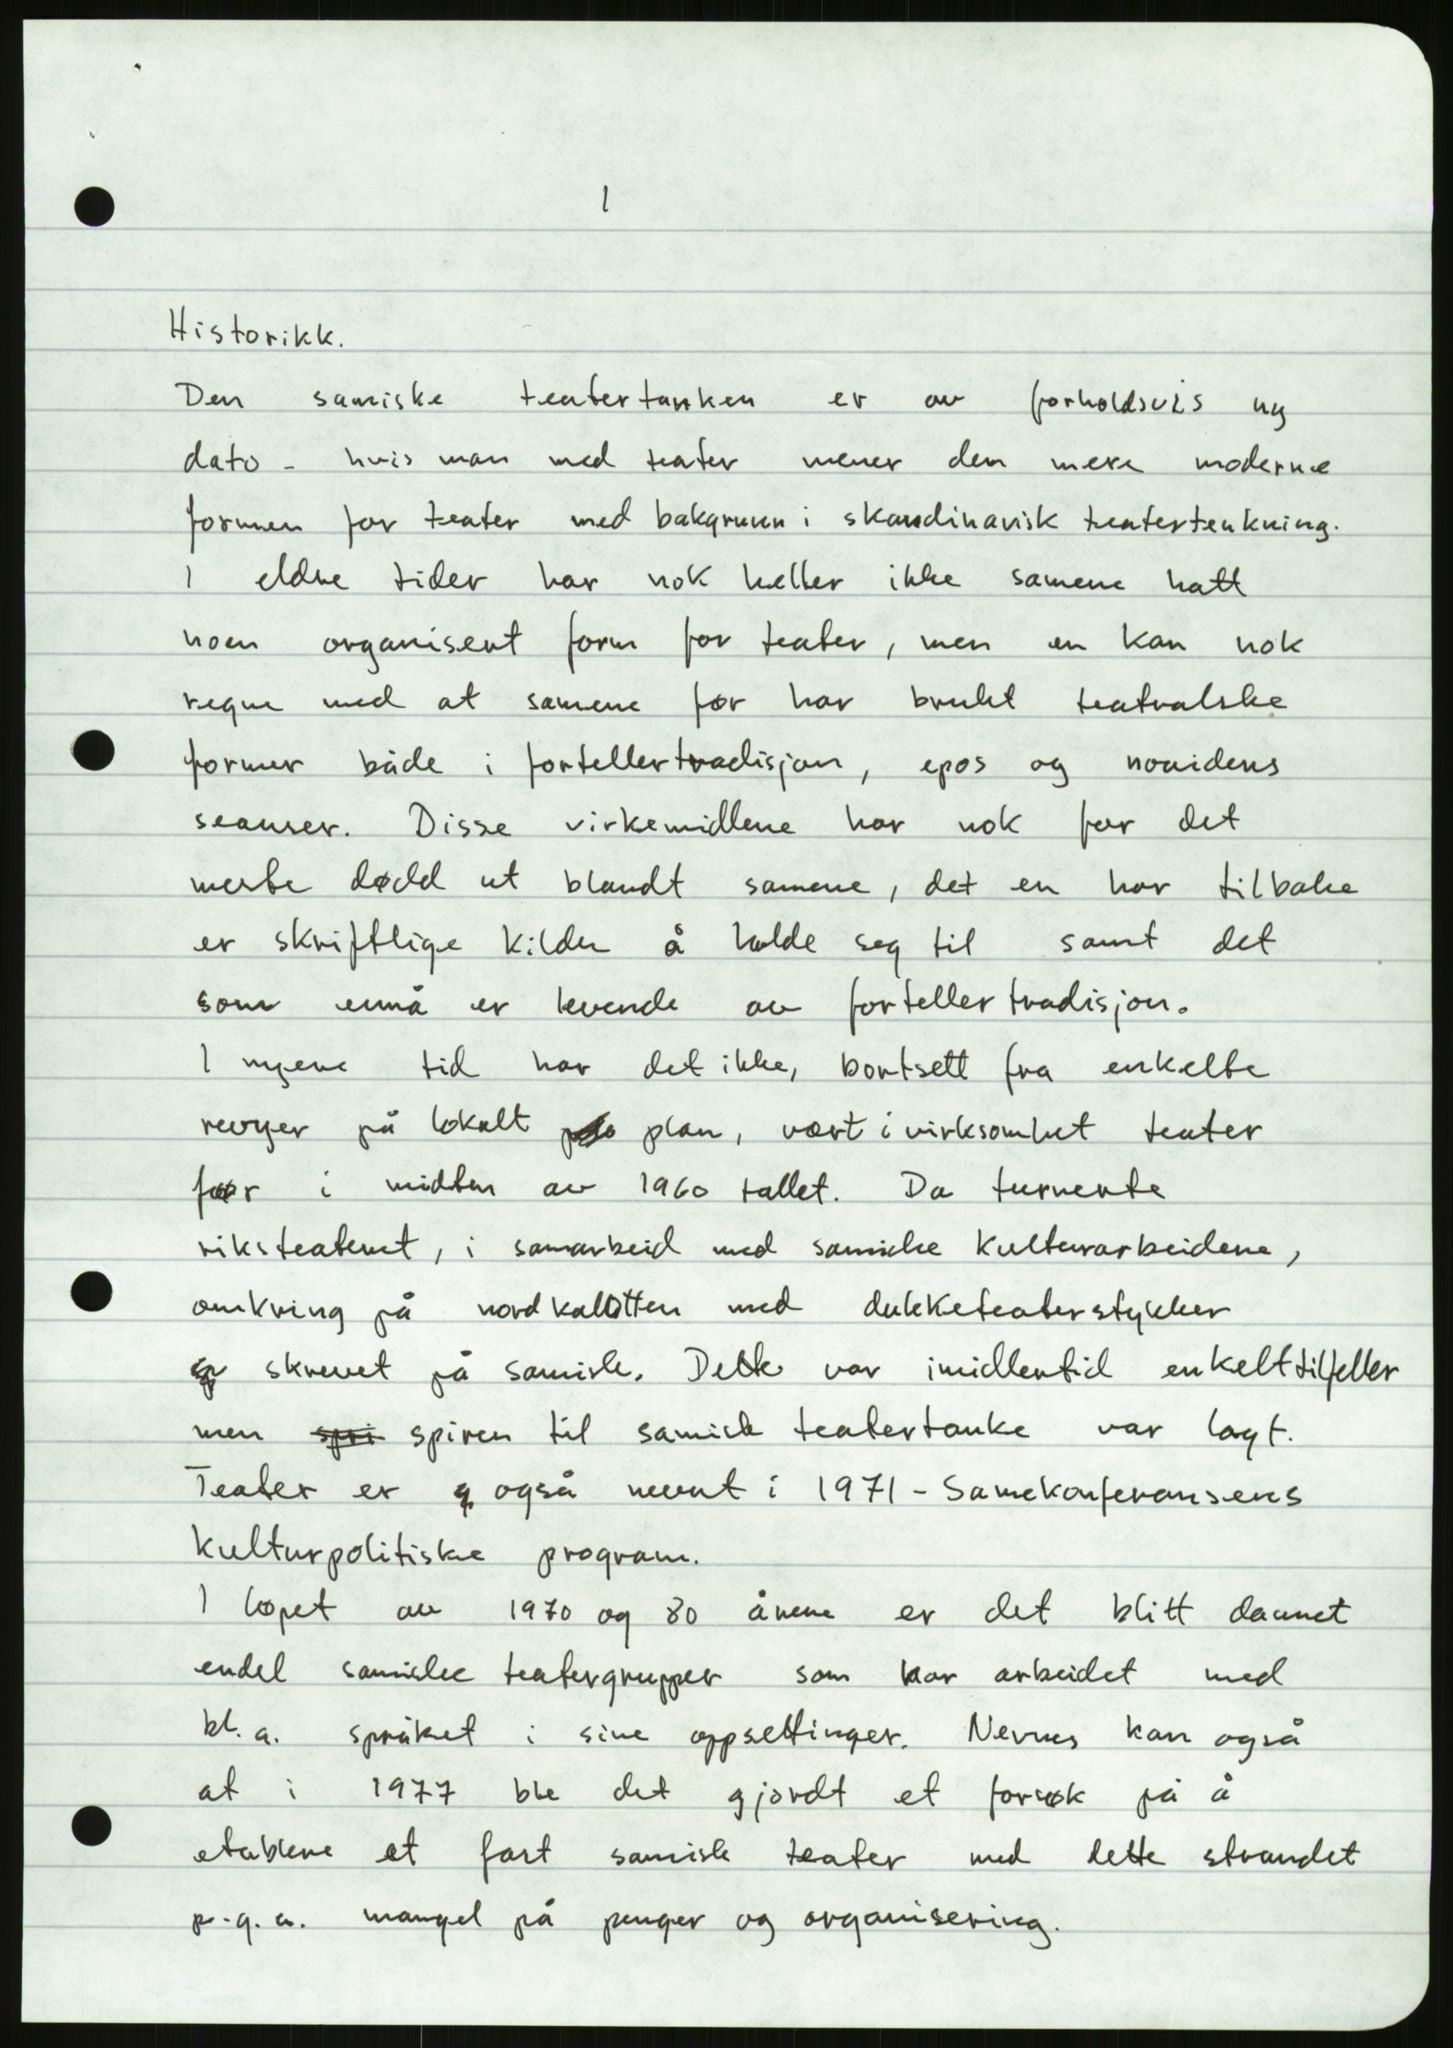 1
Historikk.
Den samiske teatertanken er av forholdsvis ny
dato - hvis man med teater mener den mere moderne
formen for teater med bakgrunn i skandinavisk teatertenkning.
I eldre tider har nok heller ikke samene hatt
noen organisert form for teater, men en kan nok
regne med at samene før har brukt teatralske
former både i fortellertradisjon, epos og noaidens
seanser. Disse virkemidlene har nok for det
meste dødd ut blandt samene, det en har tilbake
er skriftlige kilder å holde seg til samt det
som ennå er levende av fortellertradisjon.
I nyere tid har det ikke, bortsett fra enkelte
revyer på lokalt plan, vært i virksomhet teater
før i midten av 1960 tallet. Da turnerte
riksteateret, i samarbeid med samiske kulturarbeidere,
omkring på nordkalotten med dukketeaterstykker
skrevet på samisk. Dette var imidlertid enkelttilfeller
men spri spiren til samisk teatertanke var lagt.
Teater er også nevnt i 1971 - Samekonferansens
kulturpolitiske program.
I løpet av 1970 og 80 årene er det blitt dannet
endel samiske teatergrupper som har arbeidet med
bl.a. språket i sine oppsettinger. Nevnes kan også
at i 1977 ble det gjordt et forsøk på å
etablere et fast samisk teater med dette strandet
p.g.a. mangel på penger og organisering.